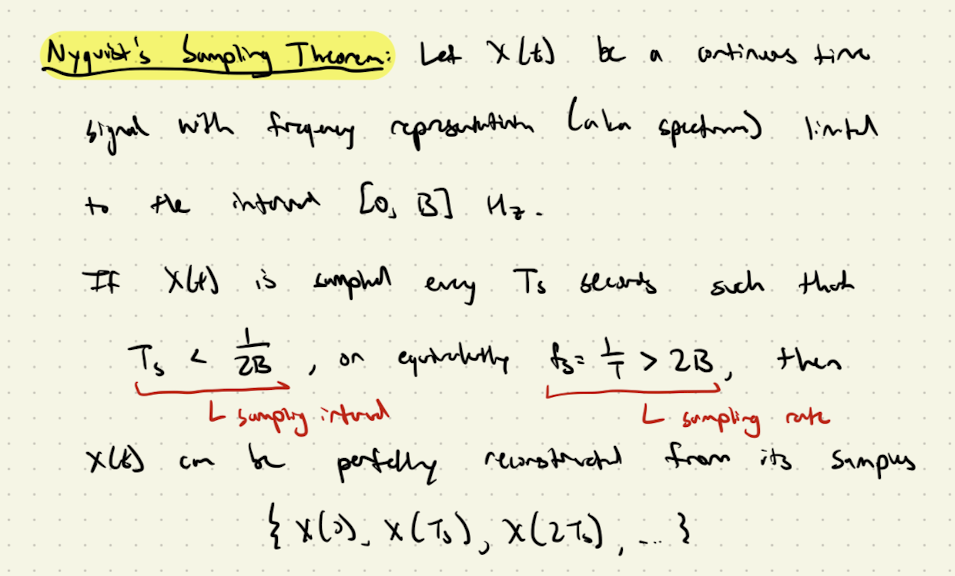 Nyquist's Sampling Theorem: Let X(t) be a continuous time
signal with frequency representation (aka spectrum) limited
to the interval [0, B] Hz.
If X(t) is sampled every Ts seconds such that
Ts < 1/2B, or equivalently fs = 1/T > 2B, then
sampling interval sampling rate
X(t) can be perfectly reconstructed from its samples
{ X(0), X(Ts), X(2Ts), ... }